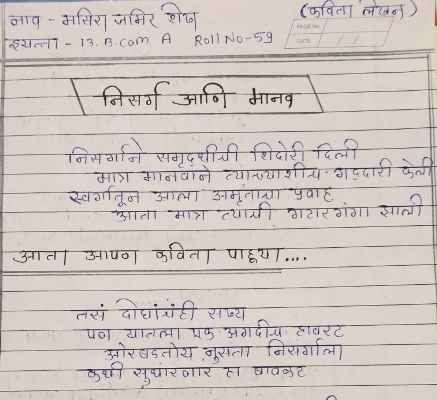 नाव - मसिरा जमिर शेख
(कविता लेखन)
इयत्ता - 13. B.com A Roll No-59
DATE
निसर्ग आणि मानव
निसर्गाने समृद्धीची शिदोरी दिली
मात्र मानवाने त्याच्याशीच गद्दारी केली
स्वर्गातून आला अमृताचा प्रवाह
आता मात्र त्याची गटार गंगा झाली
आता आपण कविता पाहूया....
तसं दोघांचंही सख्य
पण यातला एक अगदीच हावरट
ओरबडतोय नुसता निसर्गाला
कधी सुधारणार हा बावळट